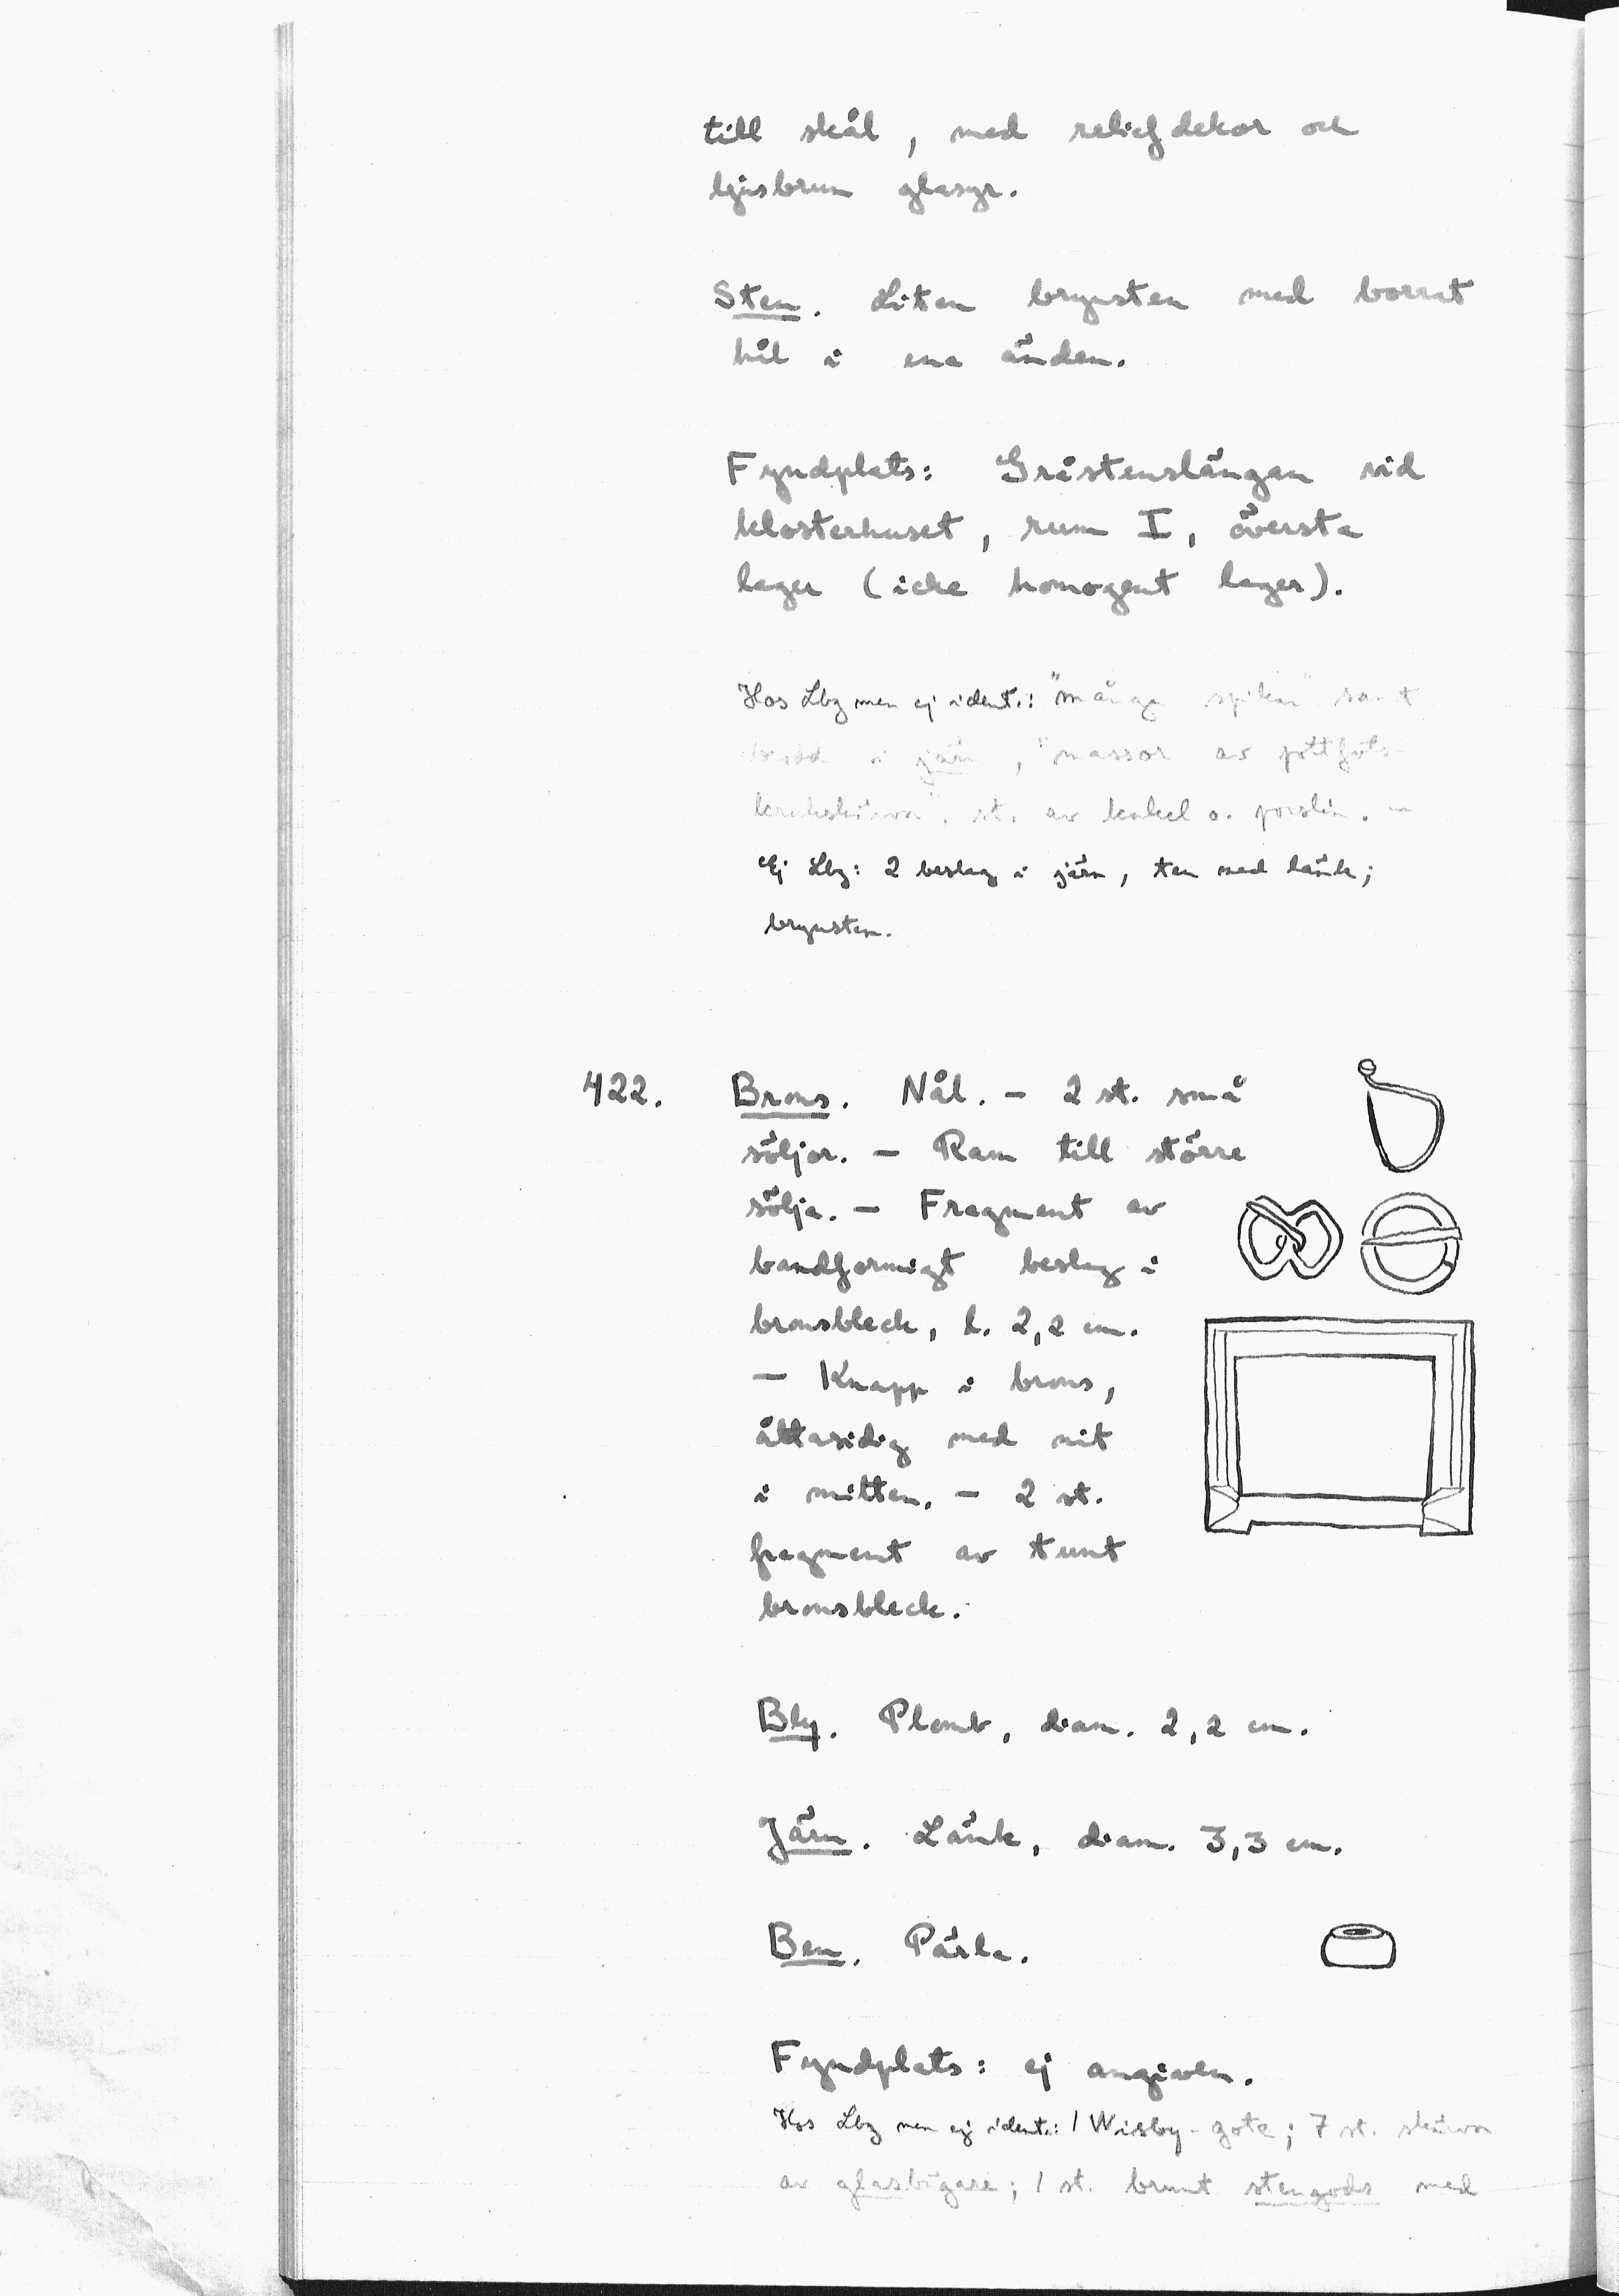 till skål, med reliefdekor och
ljusbrun glasyr.
Sten. Liten brynsten med borrat
hål i ena änden.
Fyndplats: Gråstenslängan vid
klosterhuset, rum I, översta
lager (icke homogent lager).
Hos Lbg men ej ident.: "många spikar" samt
i järn, "massor av pottfots-
krukskärvor", st. av kakel o. porslin. —
Ej Lbg: 2 beslag i järn, ten med länk;
brynsten.
422. Brons. Nål. — 2 st. små
söljor. — Ram till större
sölja. — Fragment av
bandformigt beslag i
bronsbleck, l. 2,2 cm.
— Knapp i brons,
åttasidig med nit
i mitten. — 2 st.
fragment av tunt
bronsbleck.
Bly. Plomb, diam. 2,2 cm.
Järn. Länk, diam. 3,3 cm.
Ben. Pärla.
Fyndplats: ej angiven.
Hos Lbg men ej ident.: 1 Wisby-gote; 7 st. skärvor
av glasbägare; 1 st. brunt stengods med